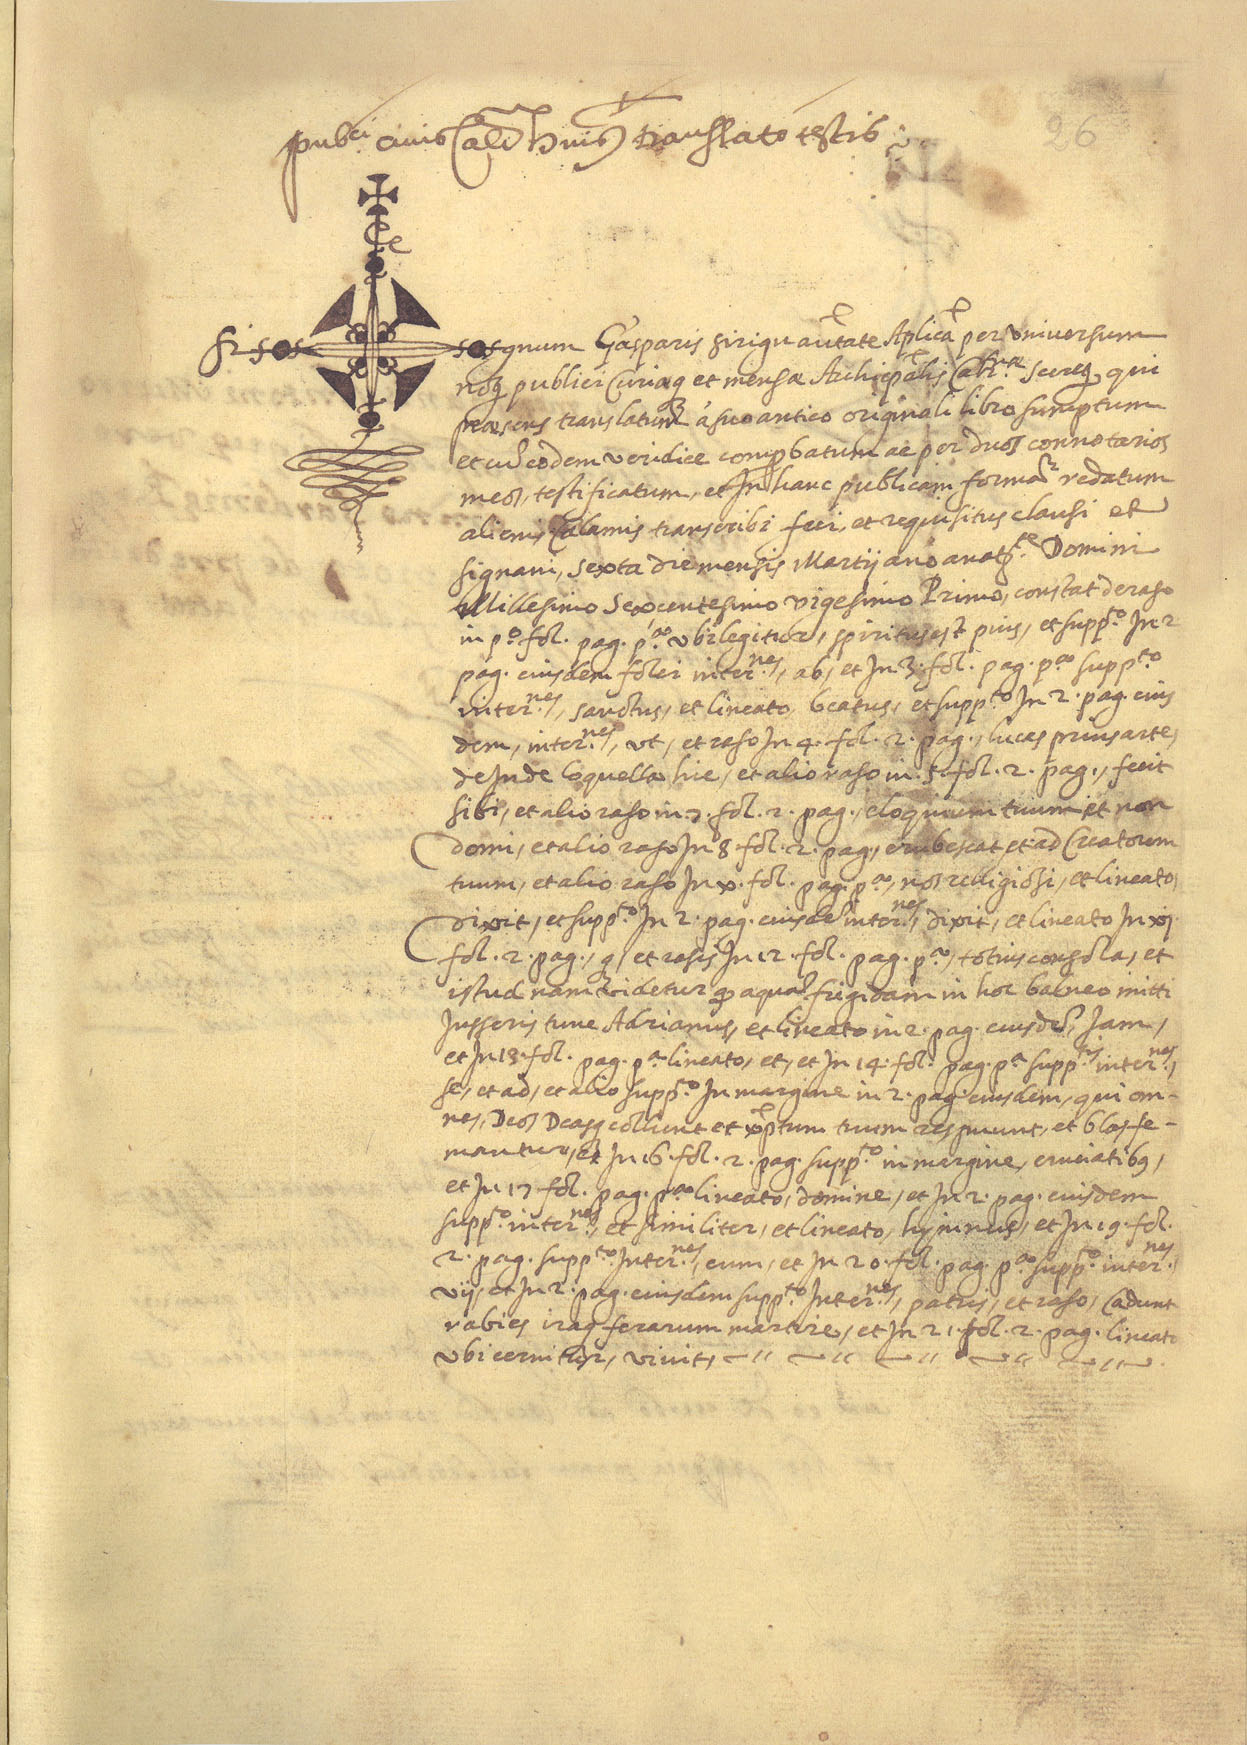 pub.ci civis Call.s huius translato testis
26
Si sos sos gnum Gasparis Sirigu auctate Aplica per universum
nos publici Curiaq et mensæ Archiepalis Secreq qui
præsens translatum a suo antico originali libro sumptum
et cu eodem veridice comprobatum ac per duos connotarios
meos, testificatum, et In hanc publicam forma redatum
alienis Calamis transcribi feci, et requisitus clausi et
signavi, sexta die mensis Martij ano a natte Domini
Millesimo Sexcentesimo vigesimo Primo, constat de raso
in p.º fol. pag. p.ª ubi legitur, spiritus est pius, et supp.to In 2
pag. eiusdem folei inter.nes, ab, et In 3. fol. pag. p.ª supp.to
inter.nes, sanctus, et lineato, beatus, et supp.to In 2. pag. eius
dem, inter.nes, ut, et raso In 4. fol. 2. pag., lucas prius arte,
deinde loquella hic, et alio raso in 5. fol. 2. pag., fecit
sibi, et alio raso in 7. fol. 2. pag., eloquium tuum et non
domi, et alio raso In 8. fol. 2. pag., erubescat et ad Creatorem
tuum, et alio raso In x. fol. pag. p.ª, nos religiosi, et lineato,
dixit, et supp.to In 2. pag. eiusde inter.nes, dixit, et lineato In xj.
fol. 2. pag., q, et rasis In 12. fol. pag. p.ª, totius consola, et
istud nam videtur q aqua frigidam in hoc balneo mitti
Jusseris tunc Adrianus, et lineato in 2. pag. eiusde, Jam,
et In 13. fol. pag. p.ª lineato, et, et In 14. fol. pag. p.ª supp.tis inter.nes,
se, et ad, et alio supp.to In margine in 2. pag. eiusdem, qui om-
nes, Deos Deasq collunt et xptum tuum respuunt, et blasfe-
mantur, et In 16. fol. 2. pag. supp.to in margine, cruciatib9,
et In 17 fol. pag. p.ª lineato, domine, et In 2. pag. eiusdem
supp.to inter.nes, et similiter, et lineato, hymnus, et In 19. fol.
2. pag. supp.to Inter.nes, eum, et In 20. fol. pag. p.ª supp.to inter.nes,
vij, et In 2. pag. eiusdem supp.to Inter.nes, patris, et raso, Cadunt
rabies iraq ferarum martire, et In 21. fol. 2. pag. lineato
ubi cernitur, vivit,